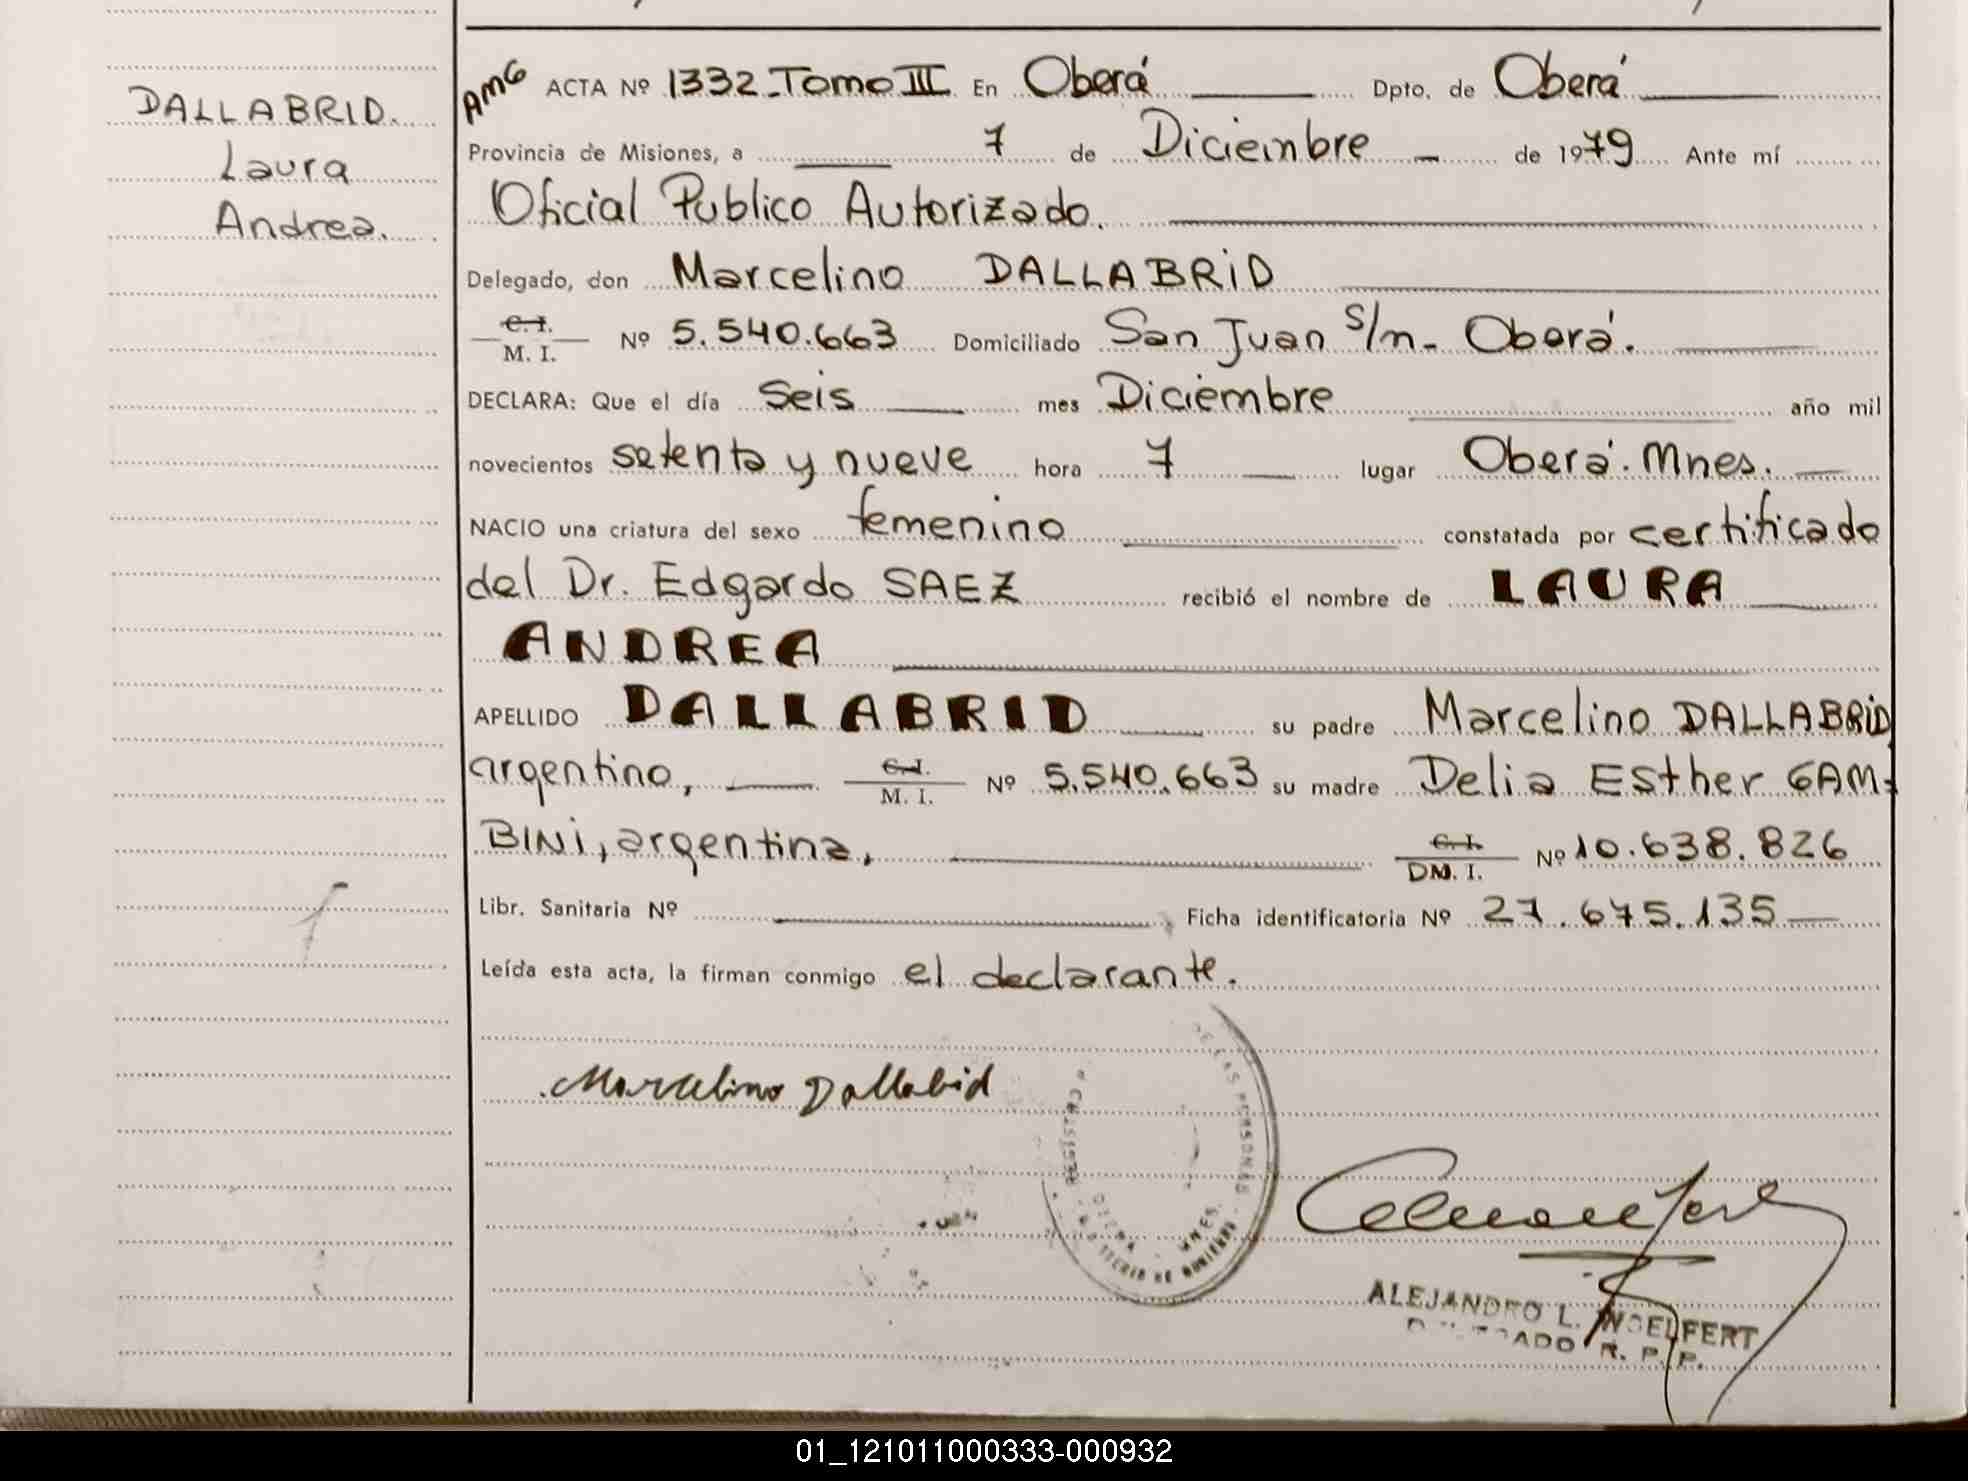 DALLABRID.
Laura
Andrea.
AMG ACTA Nº 1332 - Tomo III En Oberá Dpto. de Oberá
Provincia de Misiones, a 7 de Diciembre de 1979 Ante mí
Oficial Publico Autorizado.
Delegado, don Marcelino DALLABRID
C. I.
M. I. Nº 5.540.663 Domiciliado San Juan s/n - Oberá.
DECLARA: Que el día Seis mes Diciembre año mil
novecientos setenta y nueve hora 7 lugar Oberá. Mnes.
NACIO una criatura del sexo femenino constatada por certificado
del Dr. Edgardo SAEZ recibió el nombre de LAURA
ANDREA
APELLIDO DALLABRID su padre Marcelino DALLABRID
argentino, C. I. M. I. Nº 5.540.663 su madre Delia Esther GAM-
BINI, argentina, C. I. DM. I. Nº 10.638.826
Libr. Sanitaria Nº Ficha identificatoria Nº 27.675.135
Leída esta acta, la firman conmigo el declarante.
Marcelino Dallabid
DE LAS PERSONAS
REGISTRO
OBERA - MNES.
MINISTERIO DE
ALEJANDRO L. WOELFERT
DELEGADO R. P. P.
01_121011000333-000932